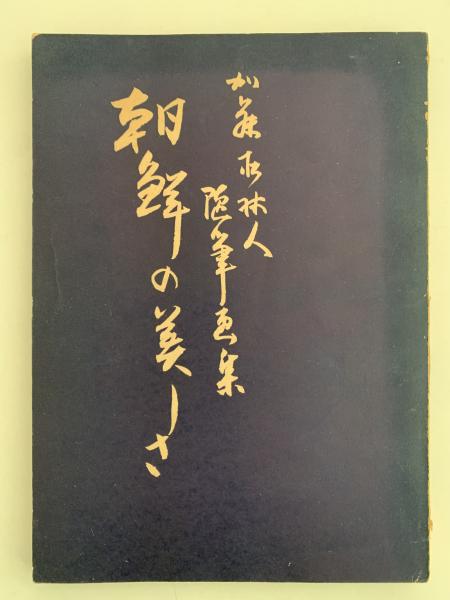 加藤松林人
随筆画集
朝鮮の美しさ